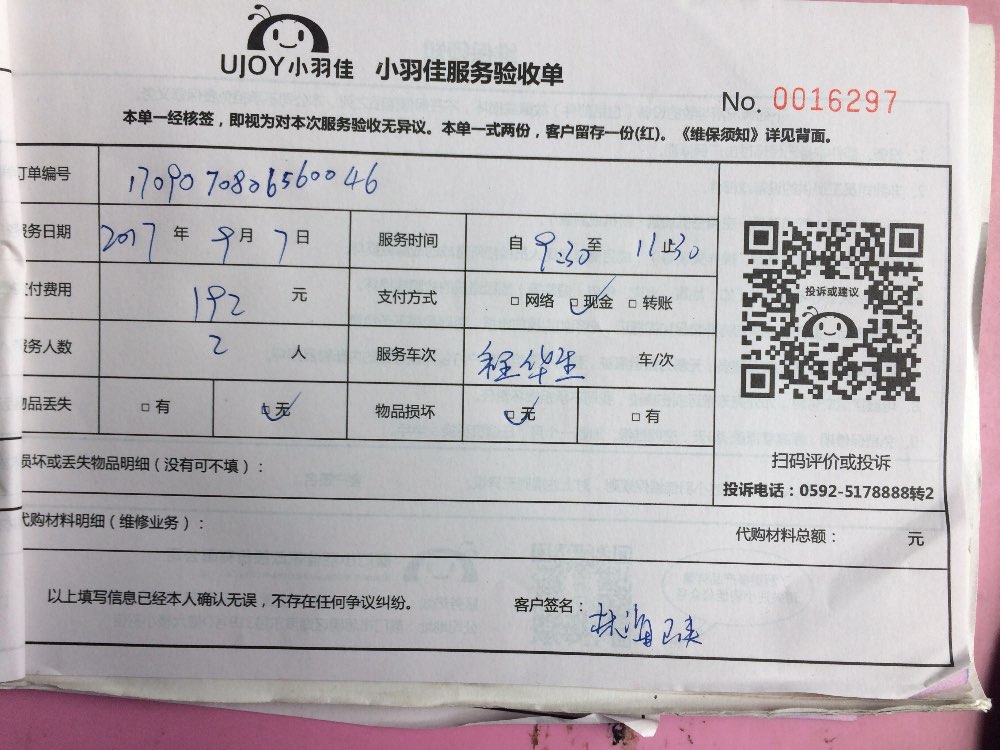 UJOY小羽佳 小羽佳服务验收单
No. 0016297
本单一经核签，即视为对本次服务验收无异议。本单一式两份，客户留存一份(红)。《维保须知》详见背面。
订单编号 170907080656004 6
服务日期 2017 年 9 月 7 日 服务时间 自 9:30 至 11:30 止
支付费用 192 元 支付方式 □网络 □现金 □转账
服务人数 2 人 服务车次 程华生 车/次
物品丢失 □有 □无 物品损坏 □无 □有
投诉或建议
扫码评价或投诉
投诉电话：0592-5178888转2
损坏或丢失物品明细（没有可不填）：
代购材料明细（维修业务）： 代购材料总额： 元
以上填写信息已经本人确认无误，不存在任何争议纠纷。 客户签名：